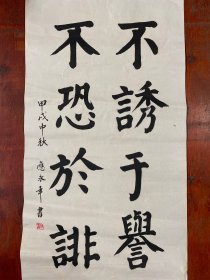 不誘于譽
不恐於誹
甲戌中秋 應永年書